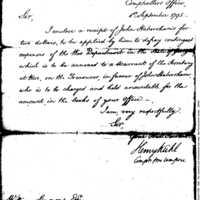 Comptrollers Office,
1st September 1795.
Sir,
I inclose a receipt of John Habersham for
two dollars, to be applied by him to defray contingent
expenses of the War Department on the State of Georgia
which is to be annexed to a Warrant of the Secretary
at War, on the Treasurer, in favour of John Habersham,
who is to be charged and held accountable for the
amount in the books of your office.
I am, very respectfully
Sir,
Henry Kuhl